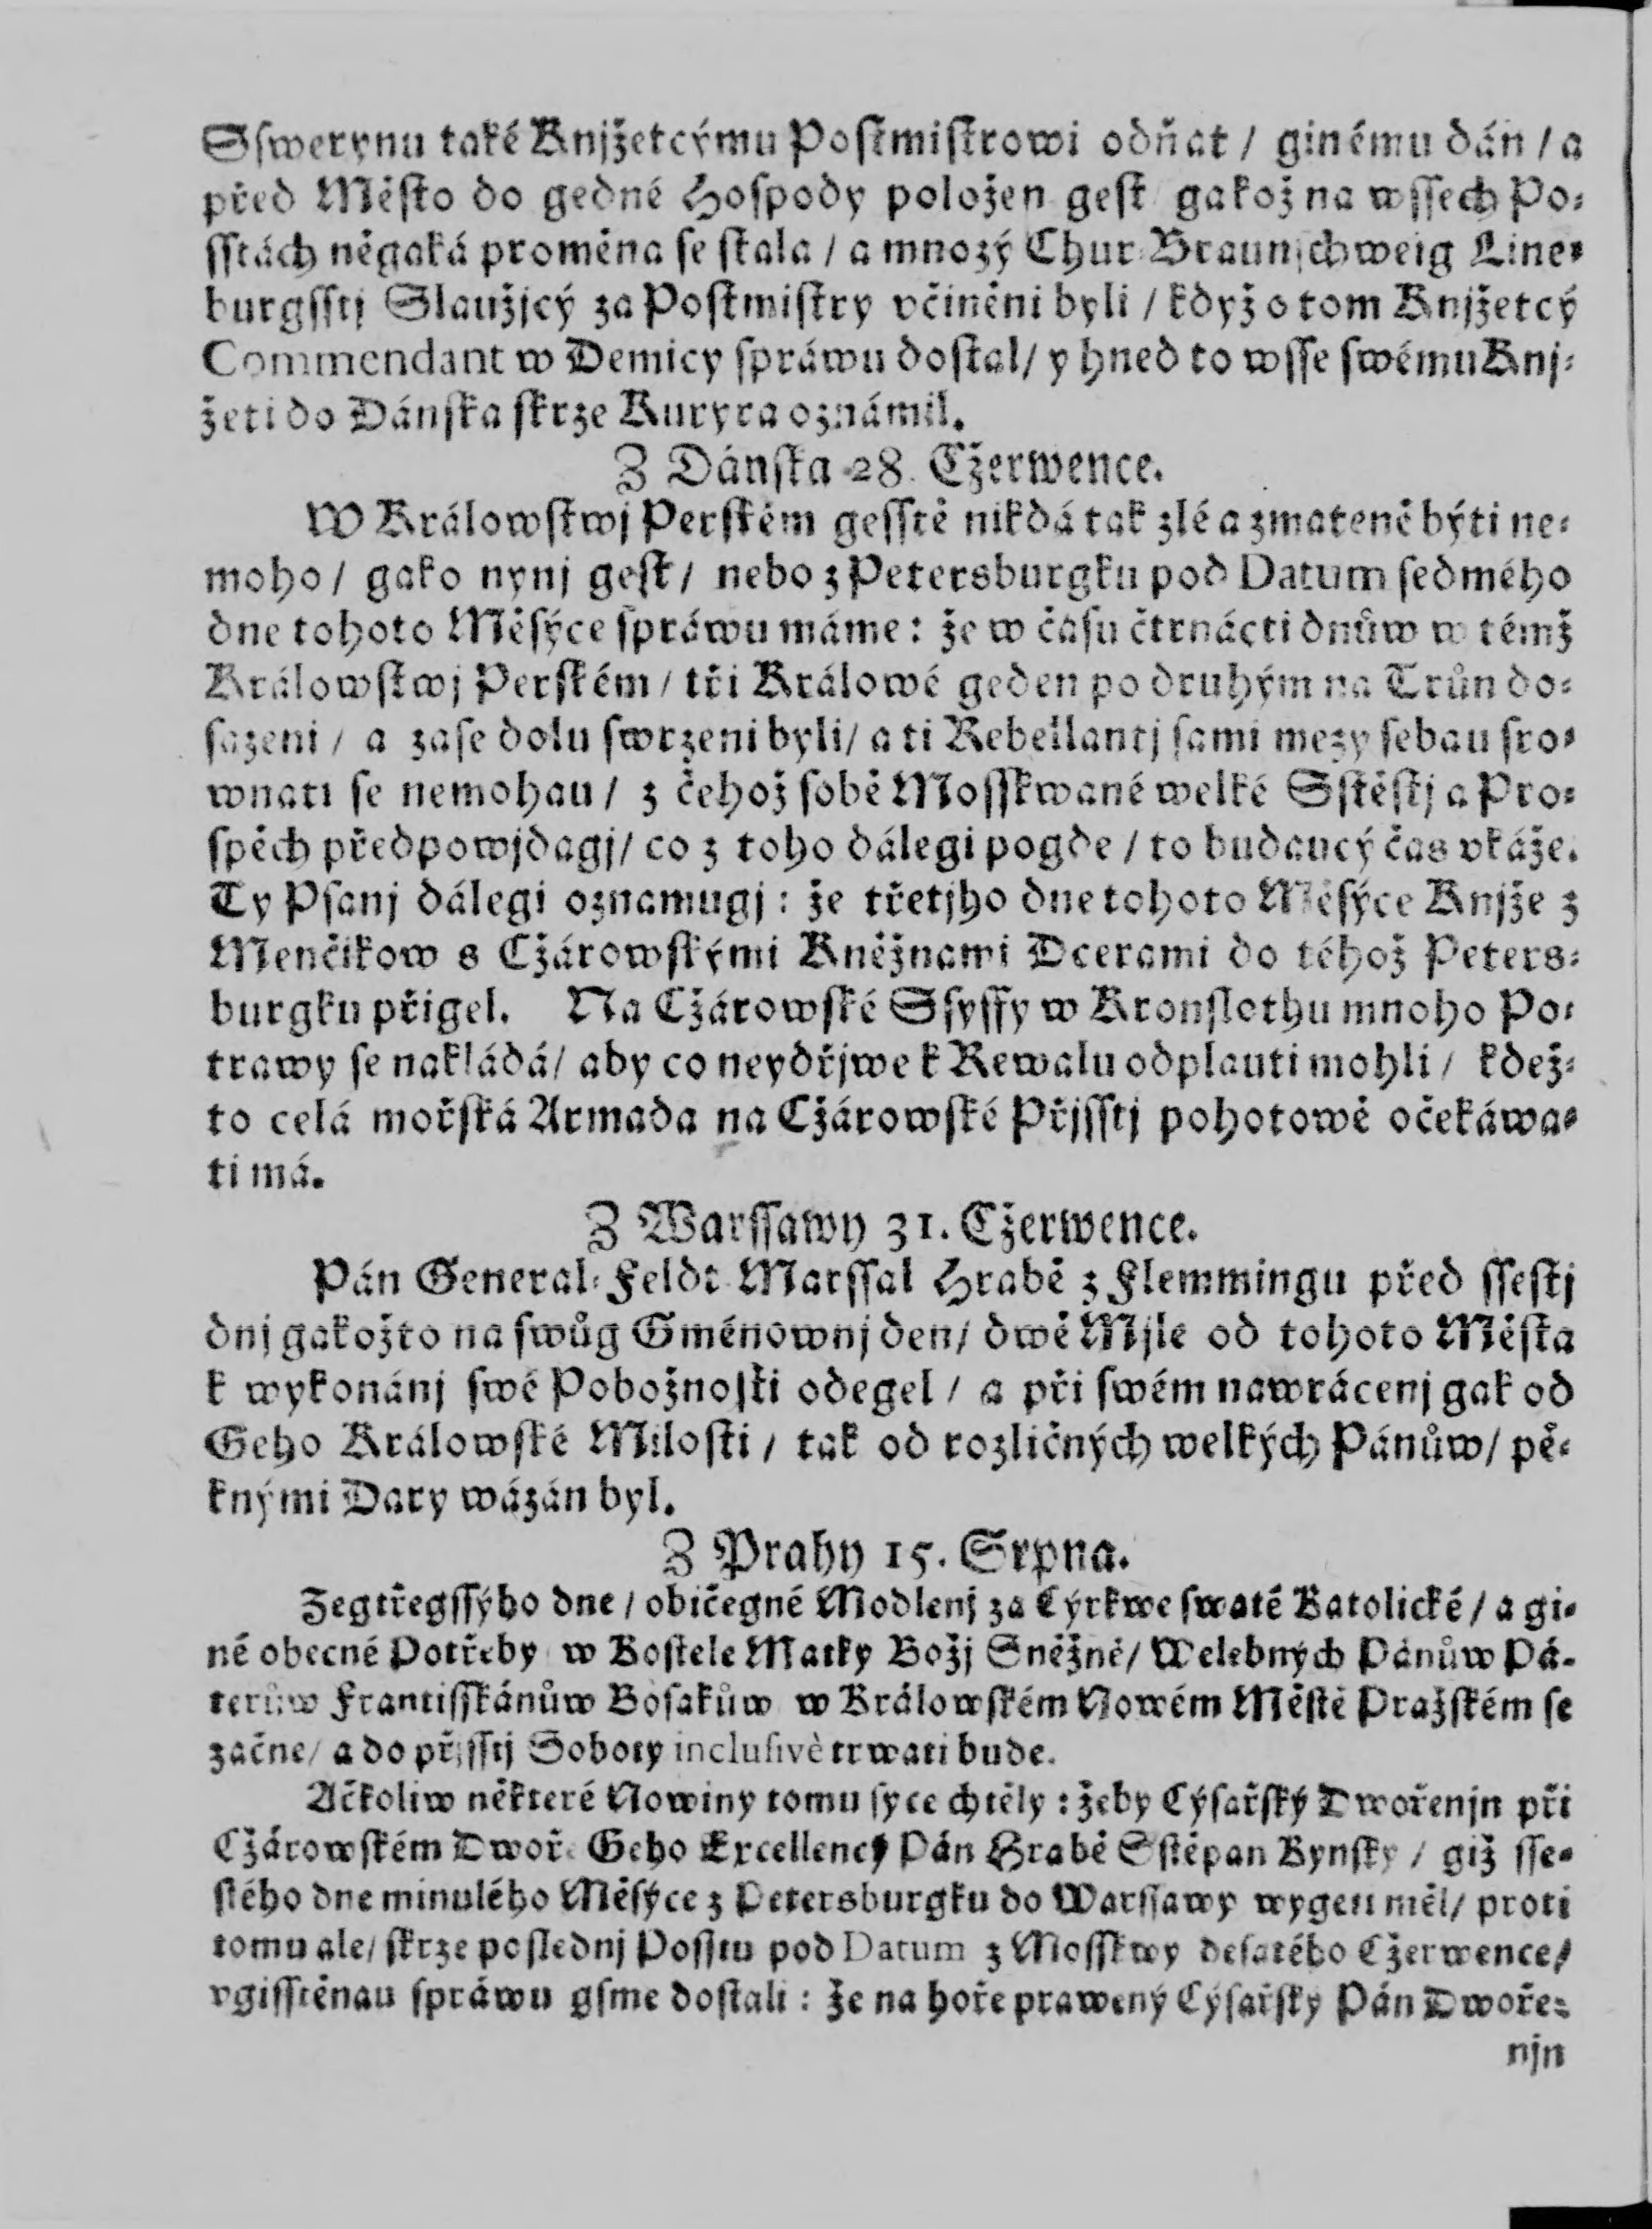 Sſwerynu také Knjžetcýmu Poſtmiſtrowi odňat / ginému dán / a
před Měſto do gedné Hoſpody položen geſt gakož na wſſech Po⸗
ſſtách něgaká proměna ſe ſtala / a mnozý Chur Braunſchweig Line⸗
burgſſtj Slaužjcý za Poſtmiſtry včiněni byli / když o tom Knjžetcý
Commendant w Demicy ſpráwu doſtal / y hned to wſſe ſwému Knj⸗
žeti do Dánſka ſkrze Kuryra oznámil.
Z Dánſka 28. Cžerwence.
W Králowſtwj Perſkém geſſtě nikdá tak zlé a zmatené býti ne⸗
moho / gako nynj geſt / nebo z Petersburgku pod Datum ſedmého
dne tohoto Měſýce ſpráwu máme: že w čaſu čtrnácti dnůw w témž
Králowſtwj Perſkém / tři Králowé geden po druhým na Trůn do⸗
ſazeni / a zaſe dolu ſwrzeni byli / a ti Rebellantj ſami mezy ſebau ſro⸗
wnati ſe nemohau / z čehož ſobě Moſſkwané welké Sſtěſtj a Pro⸗
ſpěch předpowjdagj / co z toho dálegi pogde / to budaucý čas vkáže.
Ty Pſanj dálegi oznamugj: že třetjho dne tohoto Měſýce Knjže z
Menčikow s Cžárowſkými Kněžnami Dcerami do téhož Peters⸗
burgku přigel. Na Cžárowſké Sſyffy w Kronſlothu mnoho Po⸗
trawy ſe nakládá / aby co neydřjwe k Rewalu odplauti mohli / kdež⸗
to celá mořſká Armada na Cžárowſké Přjſſtj pohotowě očekáwa⸗
ti má.
Z Warſſawy 31. Cžerwence.
Pán General⸗Feldt Marſſal Hrabě z Flemmingu před ſſeſtj
dnj gakožto na ſwůg Gménownj den / dwě Mjle od tohoto Měſta
k wykonánj ſwé Pobožnoſti odegel / a při ſwém nawrácenj gak od
Geho Králowſké Miloſti / tak od rozličných welkých Pánůw / pě⸗
knými Dary wázán byl.
Z Prahy 15. Srpna.
Zegtřegſſýho dne / običegné Modlenj za Cýrkwe ſwaté Katolické / a gi⸗
né obecné Potřeby w Koſtele Matky Božj Sněžné / Welebných Pánůw Pá⸗
terůw Frantiſſkánůw Boſakůw w Králowſkém Nowém Měſtě Pražſkém ſe
začne / a do přjſſtj Soboty incluſivè trwati bude.
Ačkoliw některé Nowiny tomu ſyce chtěly: žeby Cýſařſký Dwořenjn při
Cžárowſkém Dwoře Geho Excellencý Pán Hrabě Sſtěpan Kynſky / giž ſſe⸗
ſtého dne minulého Měſýce z Petersburgku do Warſſawy wygeti měl / proti
tomu ale / ſkrze poſlednj Poſſtu pod Datum z Moſſkwy deſatého Cžerwence /
vgiſſtěnau ſpráwu gſme doſtali: že na hoře prawený Cýſařſky Pán Dwoře⸗
njn